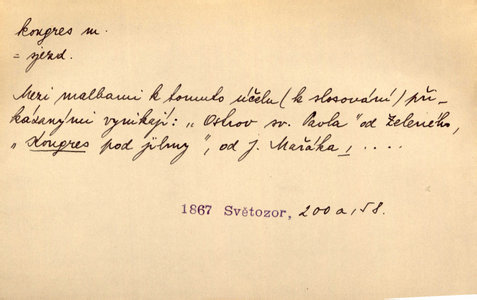 kongres m.
= sjezd.
Mezi malbami k tomuto účelu (k slosování) při-
kázanými vynikají: „Ostrov sv. Pavla" od Zeleného,
„Kongres pod jilmy", od J. Mařáka, ....
1867 Světozor, 200a, 58.